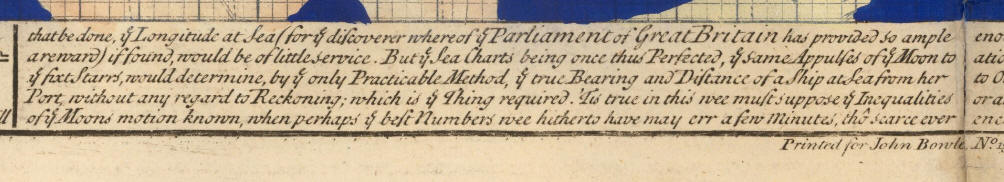 that be done, yͤ Longitude at Sea (for yͤ discoverer whereof yͤ Parliament of Great Britain has provided so ample eno
a reward) if found, would be of little service. But yͤ Sea Charts being once thus Perfected, yͤ same Appulses of yͤ Moon to atio
yͤ fixt Starrs, would determine, by yͤ only Practicable Method, yͤ true Bearing and Distance of a Ship at Sea from her to O
Port, without any regard to Reckoning; which is yͤ Thing required. 'Tis true in this wee must suppose yͤ Inequalities or a
of yͤ Moons motion known, when perhaps yͤ best Numbers wee hitherto have may err a few Minutes, tho' scarce ever enc
Printed for John Bowle Nº 1